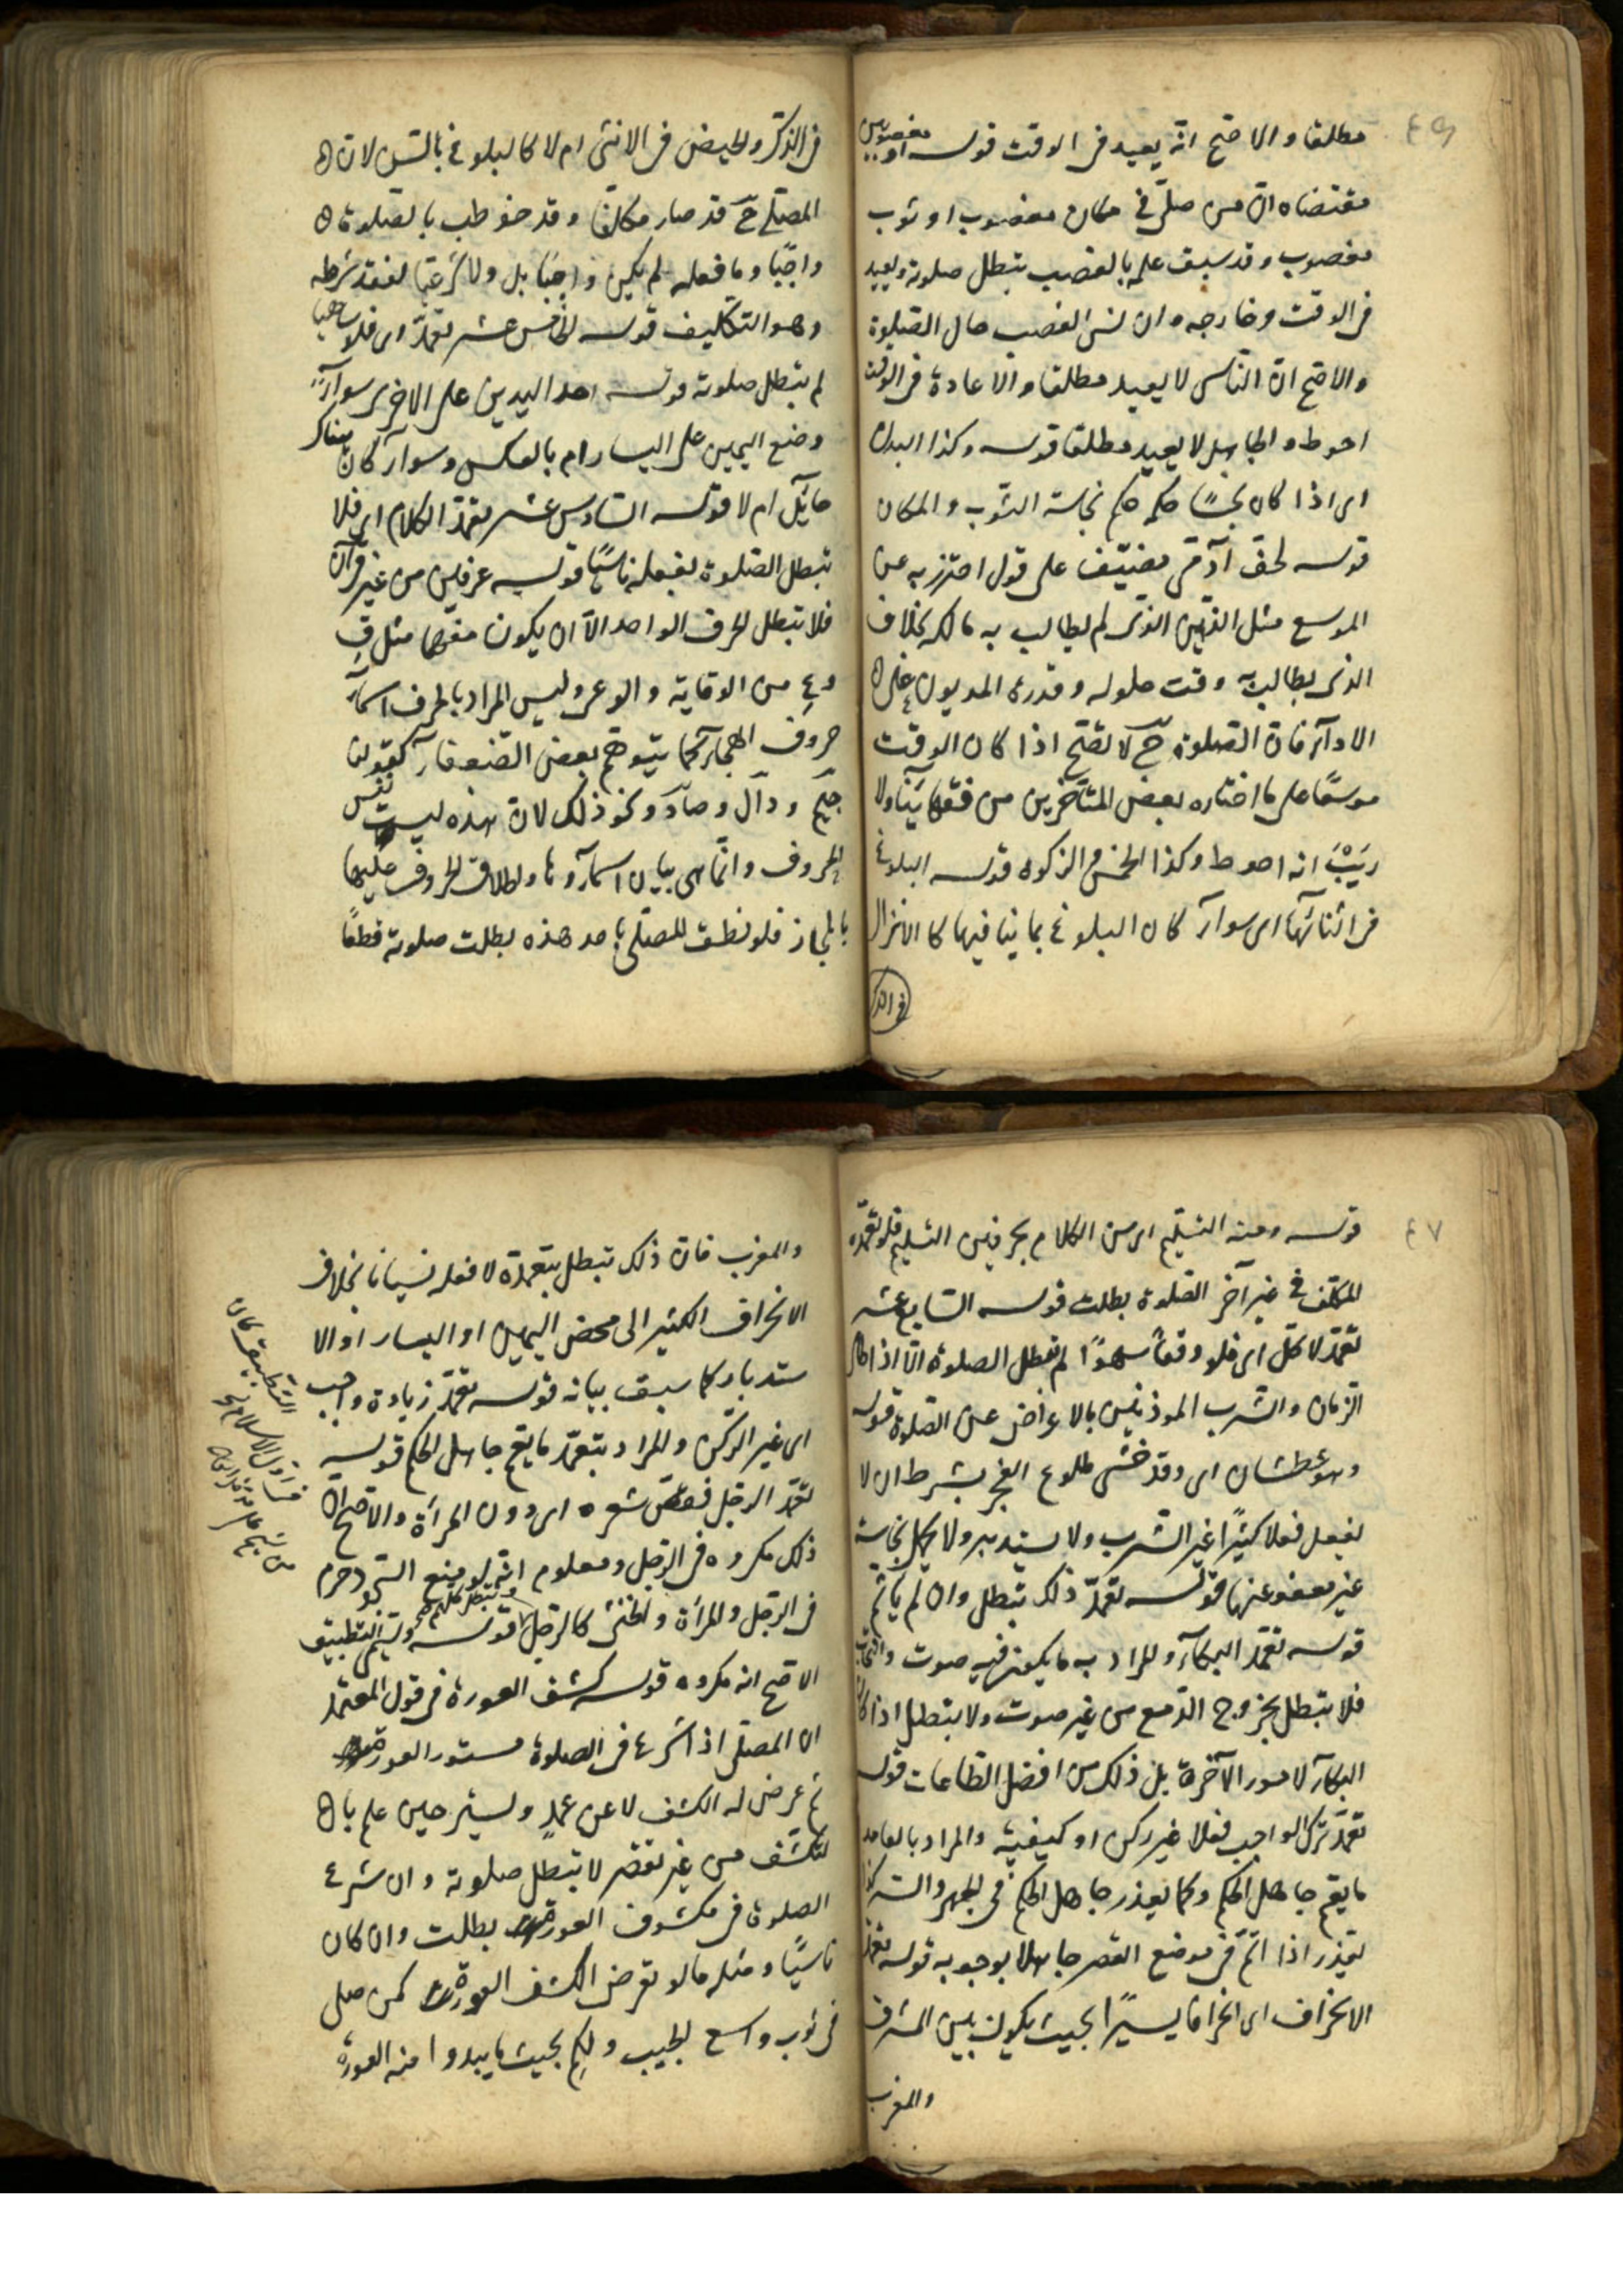 ٤٦
مطلقا والاصح انّه يعيد فى الوقت قوله او مغصوبين
مقتضاه انّ من صلّى فى مكان مغصوب او ثوب
مغصوب وقد سبق علمه بالغصب تبطل صلوته ويعيد
فى الوقت وخارجه وان نسى الغصب حال الصّلوة
والاصح انّ الناسى لا يعيد مطلقا والاعادة فى الوقت
احوط والجاهل لا يعيد مطلقا قوله وكذا البدن
اى اذا كان نجسًا حكمه حكم نجاسة الثوب والمكان
قوله لحق آدمّى مضيّق على قول احترز به عن
الموسع مثل الدّين الذى لم يطالب به مالكه بخلاف
الذى يطالب به وقت حلوله وقدرة المديون على
الادآء فان الصّلوة ح لا تصّح اذا كان الوقت
موسعًا على ما اختاره بعض المتأخرين من فقهائنا ولا
ريَبْ انه احوط وكذا الخمس والزكوة قوله البلوغ
فى اثنائها اى سوآء كان البلوغ بما ينافيها كالانزال
فى الذكر
فى الذكر والحيض فى الانثى ام لا كالبلوغ بالسّن لان
المصلّى ح قد صار مكلّفا وقد خوطب بالصّلوة
واجبًا وما فعله لم يكن واجبًا بل ولا شرعيّا لفقد شرطه
وهو التكليف قوله الخامس عشر تعمّد اى فلو ساهيا
لم تبطل صلوته قوله احد اليدين على الاخرى سوآء
وضع اليمين على اليسار ام بالعكس وسوآء كان هناك
حآئل ام لا قوله السّادس عشر تعمّد الكلام اى فلا
تبطل الصّلوة بفعله ناسيًا قوله حرفين من غير قرآن
فلا تبطل الحرف الواحد الّا ان يكون مفهما مثل قِ
وعِ من الوقاية والوعى وليس المراد بالحرف اسمآء
حروف الهجآء كما يتوهّم بعض الضعفآء كقولنا
جيم ودآل وصآد ونحو ذلك لانّ هذه ليست نفس
الحروف وانّما هى بيان اسمآؤها واطلاق الحروف عليها
بالمجاز فلو نطق المصلّى باحد هذه بطلت صلوته قطعًا
٤٧
قوله ومنه التسليم اى من الكلام بحرفين التسليم فلو تعمّده
المكلّف فى غير آخر الصّلوة بطلت قوله السّابع عشر
تعمّد الاكل اى فلو وقعا سهوًا لم تبطل الصلوة الّا اذا طال
الزمان والشرب الموذنين بالاعراض عن الصّلوة قوله
وهو عطشان اى وقد خشى طلوع الفجر بشرط ان لا
يفعل فعلا كثيرًا غير الشرب ولا يستدبر ولا يحمل نجاسة
غير معفو عنها قوله تعمّد ذلك تبطل وان لم يأثم
قوله تعمّد البكآء والمراد به ما يكون فيه صوت وانتحاب
فلا تبطل بخروج الدّمع من غير صوت ولا تبطل اذا كان
البكآء لامور الآخرة بل ذلك من افضل الطّاعات قوله
تعمّد ترك الواجب فعلا غير ركن او كيفيّة والمراد بالعامد
ما يعم جاهل الحكم وكما يعذر جاهل الحكم فى الجهر والسّر كذا
يعذر اذا اتمّ فى موضع القصر جاهلا بوجوبه قوله تعمّد
الانحراف اى انحرافا يسيرًا بحيث يكون بين المشرق
والمغرب
والمغرب فان ذلك تبطل بتعمّده لا فعله نسيانا بخلاف
الانحراف الكثير الى محض اليمين او اليسار او الا
ستدبار كما سبق بيانه قوله تعمّد زيادة واجب
اى غير الركن والمراد بتعمّد ما يعم جاهل الحكم قوله
تعمّد الرجل عقص شعره اى دون المرأة والاصح انّ
ذلك مكروه فى الرّجل ومعلوم انّه لو منع السّجود حرم
فى الرجل والمرأة والخنثى كالرجل قوله ويسمّى التطبيق
الاصح انه مكروه قوله كشف العورة فى قول المعتمد
ان المصلّى اذا شرع فى الصلوة مستور العورة
ثم عرض له الكشف لا عن عمدٍ وستر حين علم با
لتكشّف من غير تقصير لا تبطل صلوته وان شرع
الصلوة فى مكشوف العورة بطلت وان كان
ناسيًا ومثله ما لو تعرض الكشف العورة كمن صلى
فى ثوب واسع الجيب والكم بحيث ما يبدوا منه العورة
التطبيق كان
فى اوّل الاسلام